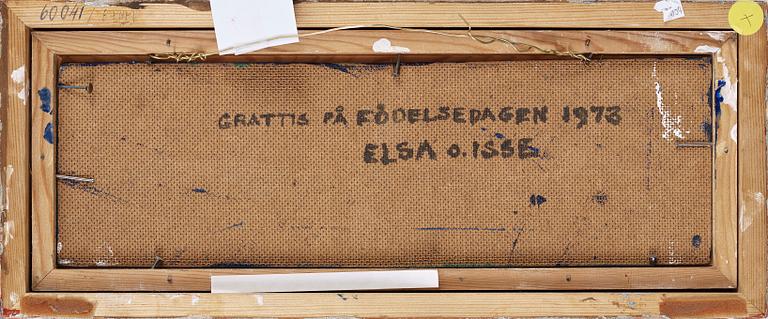 60041
GRATTIS PÅ FÖDELSEDAGEN 1973
ELSA O. ISSE